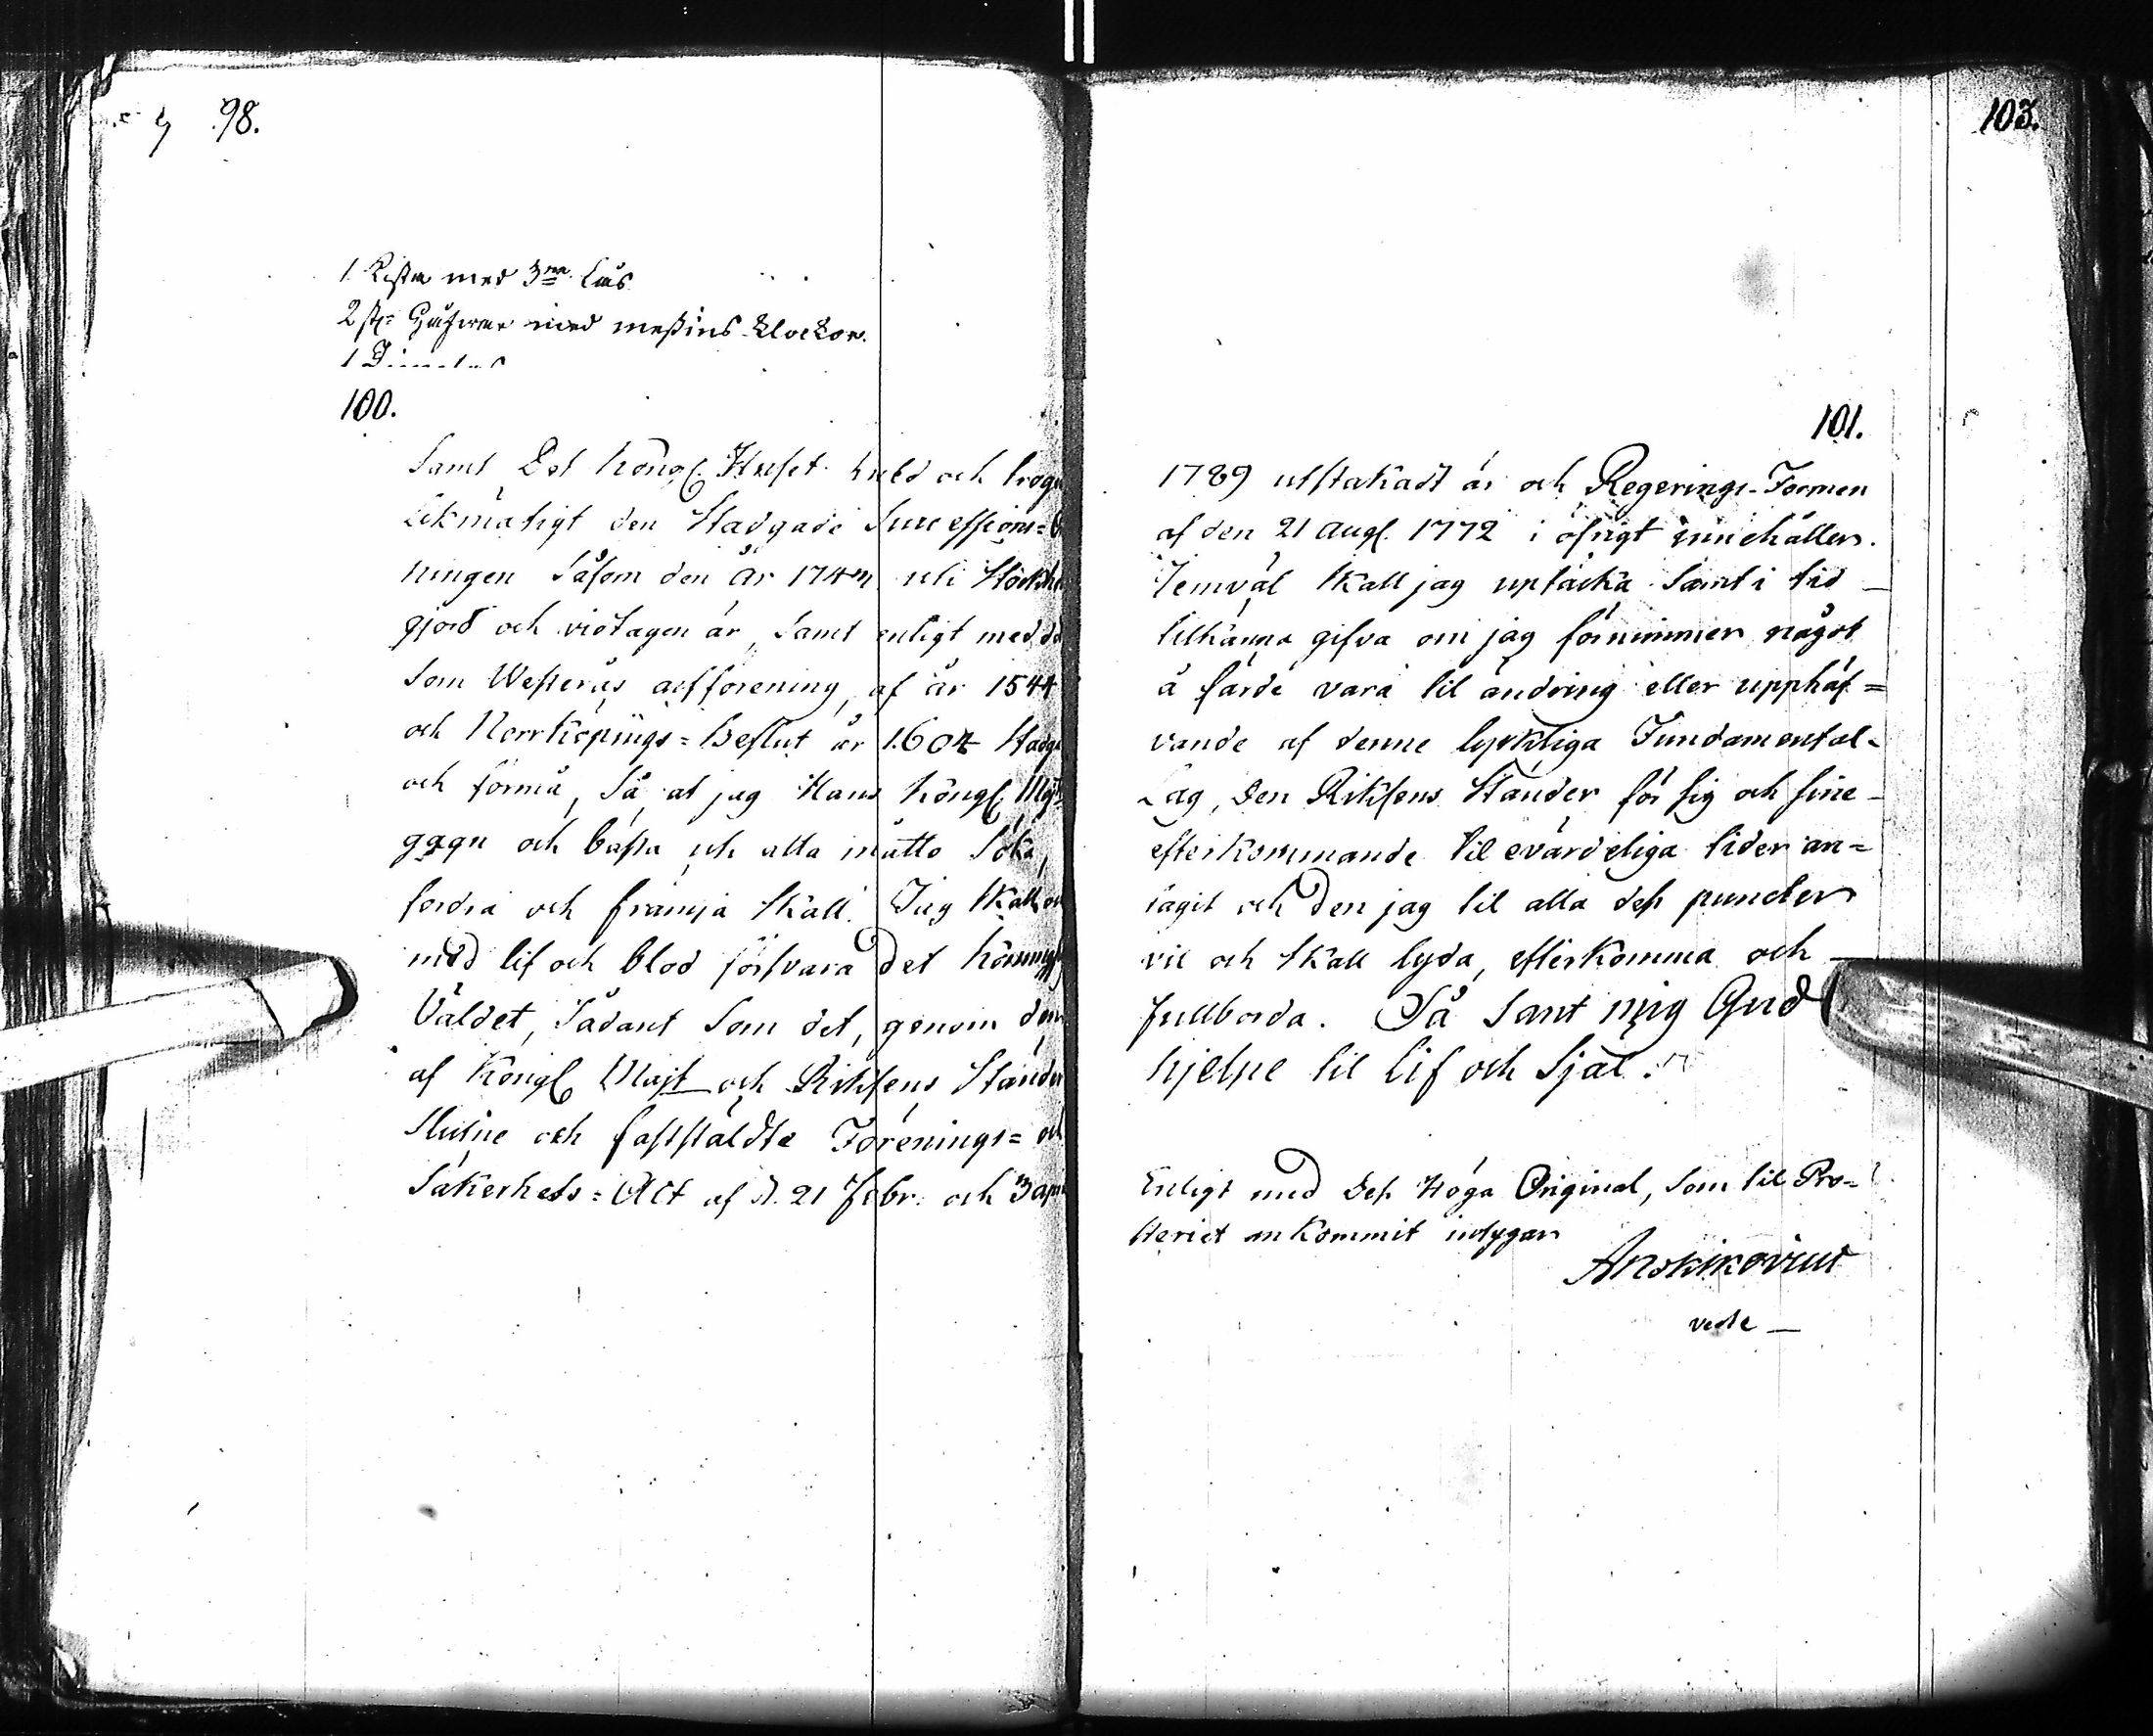 98.
1 Kista med 3ne Lås
2 st: Håfwar med messins-klockor.
100.
samt Det Kongl. Huset huld och trogen
likmätigt den stadgade Successions=
ningen såsom den år 1743 uti Stockho
gjord och vidtagen är, samt enligt med d
som Westerås arfförening, af år 1544
och Norrköpings=Beslut år 1604 stadga
och förmå, så at jag Hans Kongl. Maj:ts
gagn och bästa uti alla måtto söka,
fordra och främja skall. Jag skall och
med lif och blod försvara det Konungsl
Väldet, sådant som det, genom den
af Kongl Majt och Riksens Ständer
slutne och faststäldte Förenings= och
Säkerhets=Act af d. 21 Febr. och 3 apri
103.
101.
1789 utstakadt är och Regerings-Formen
af den 21 Aug. 1772 i öfrigt innehåller.
Jemväl skall jag uptäcka samt i tid
tilkänna gifva om jag förnimmer något
å färde vara til ändring eller upphäf=
vande af denne lyckliga Fundamental-
Lag, den Riksens Ständer för sig och sine
efterkommande til evärdeliga tider an=
tagit och den jag til alla dess puncter
vil och skall lyda, efterkomma och
fullborda. Så sant mig Gud
hjelpe til lif och Själ.
Enligt med Dess Höga Original, som til Pro=
steriet ankommit intygar